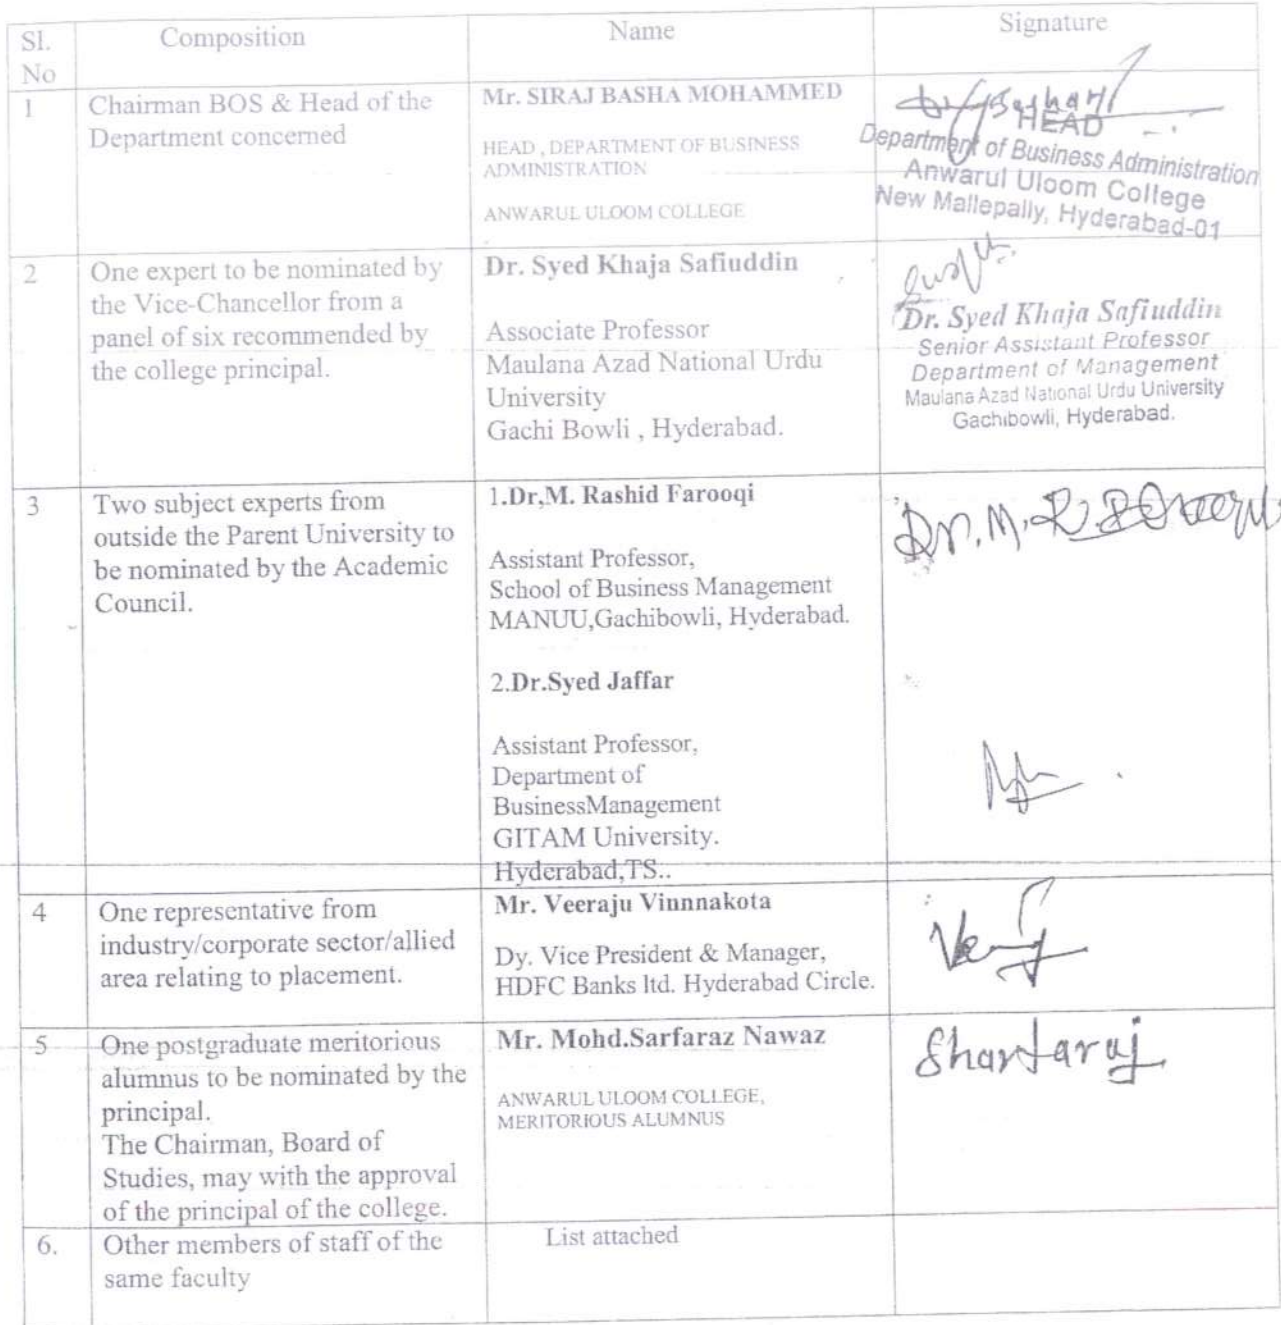 Sl. No
Composition
Name
Signature
1
Chairman BOS & Head of the
Department concerned
Mr. SIRAJ BASHA MOHAMMED
HEAD , DEPARTMENT OF BUSINESS
ADMINISTRATION
ANWARUL ULOOM COLLEGE
HEAD
Department of Business Administration
Anwarul Uloom College
New Mallepally, Hyderabad-01
2
One expert to be nominated by
the Vice-Chancellor from a
panel of six recommended by
the college principal.
Dr. Syed Khaja Safiuddin
Associate Professor
Maulana Azad National Urdu
University
Gachi Bowli , Hyderabad.
Dr. Syed Khaja Safiuddin
Senior Assistant Professor
Department of Management
Maulana Azad National Urdu University
Gachibowli, Hyderabad.
3
Two subject experts from
outside the Parent University to
be nominated by the Academic
Council.
1.Dr,M. Rashid Farooqi
Assistant Professor,
School of Business Management
MANUU,Gachibowli, Hyderabad.
2.Dr.Syed Jaffar
Assistant Professor,
Department of
BusinessManagement
GITAM University.
Hyderabad,TS..
Dr. M. R.
4
One representative from
industry/corporate sector/allied
area relating to placement.
Mr. Veeraju Vinnnakota
Dy. Vice President & Manager,
HDFC Banks ltd. Hyderabad Circle.
5
One postgraduate meritorious
alumnus to be nominated by the
principal.
The Chairman, Board of
Studies, may with the approval
of the principal of the college.
Mr. Mohd.Sarfaraz Nawaz
ANWARUL ULOOM COLLEGE,
MERITORIOUS ALUMNUS
6.
Other members of staff of the
same faculty
List attached